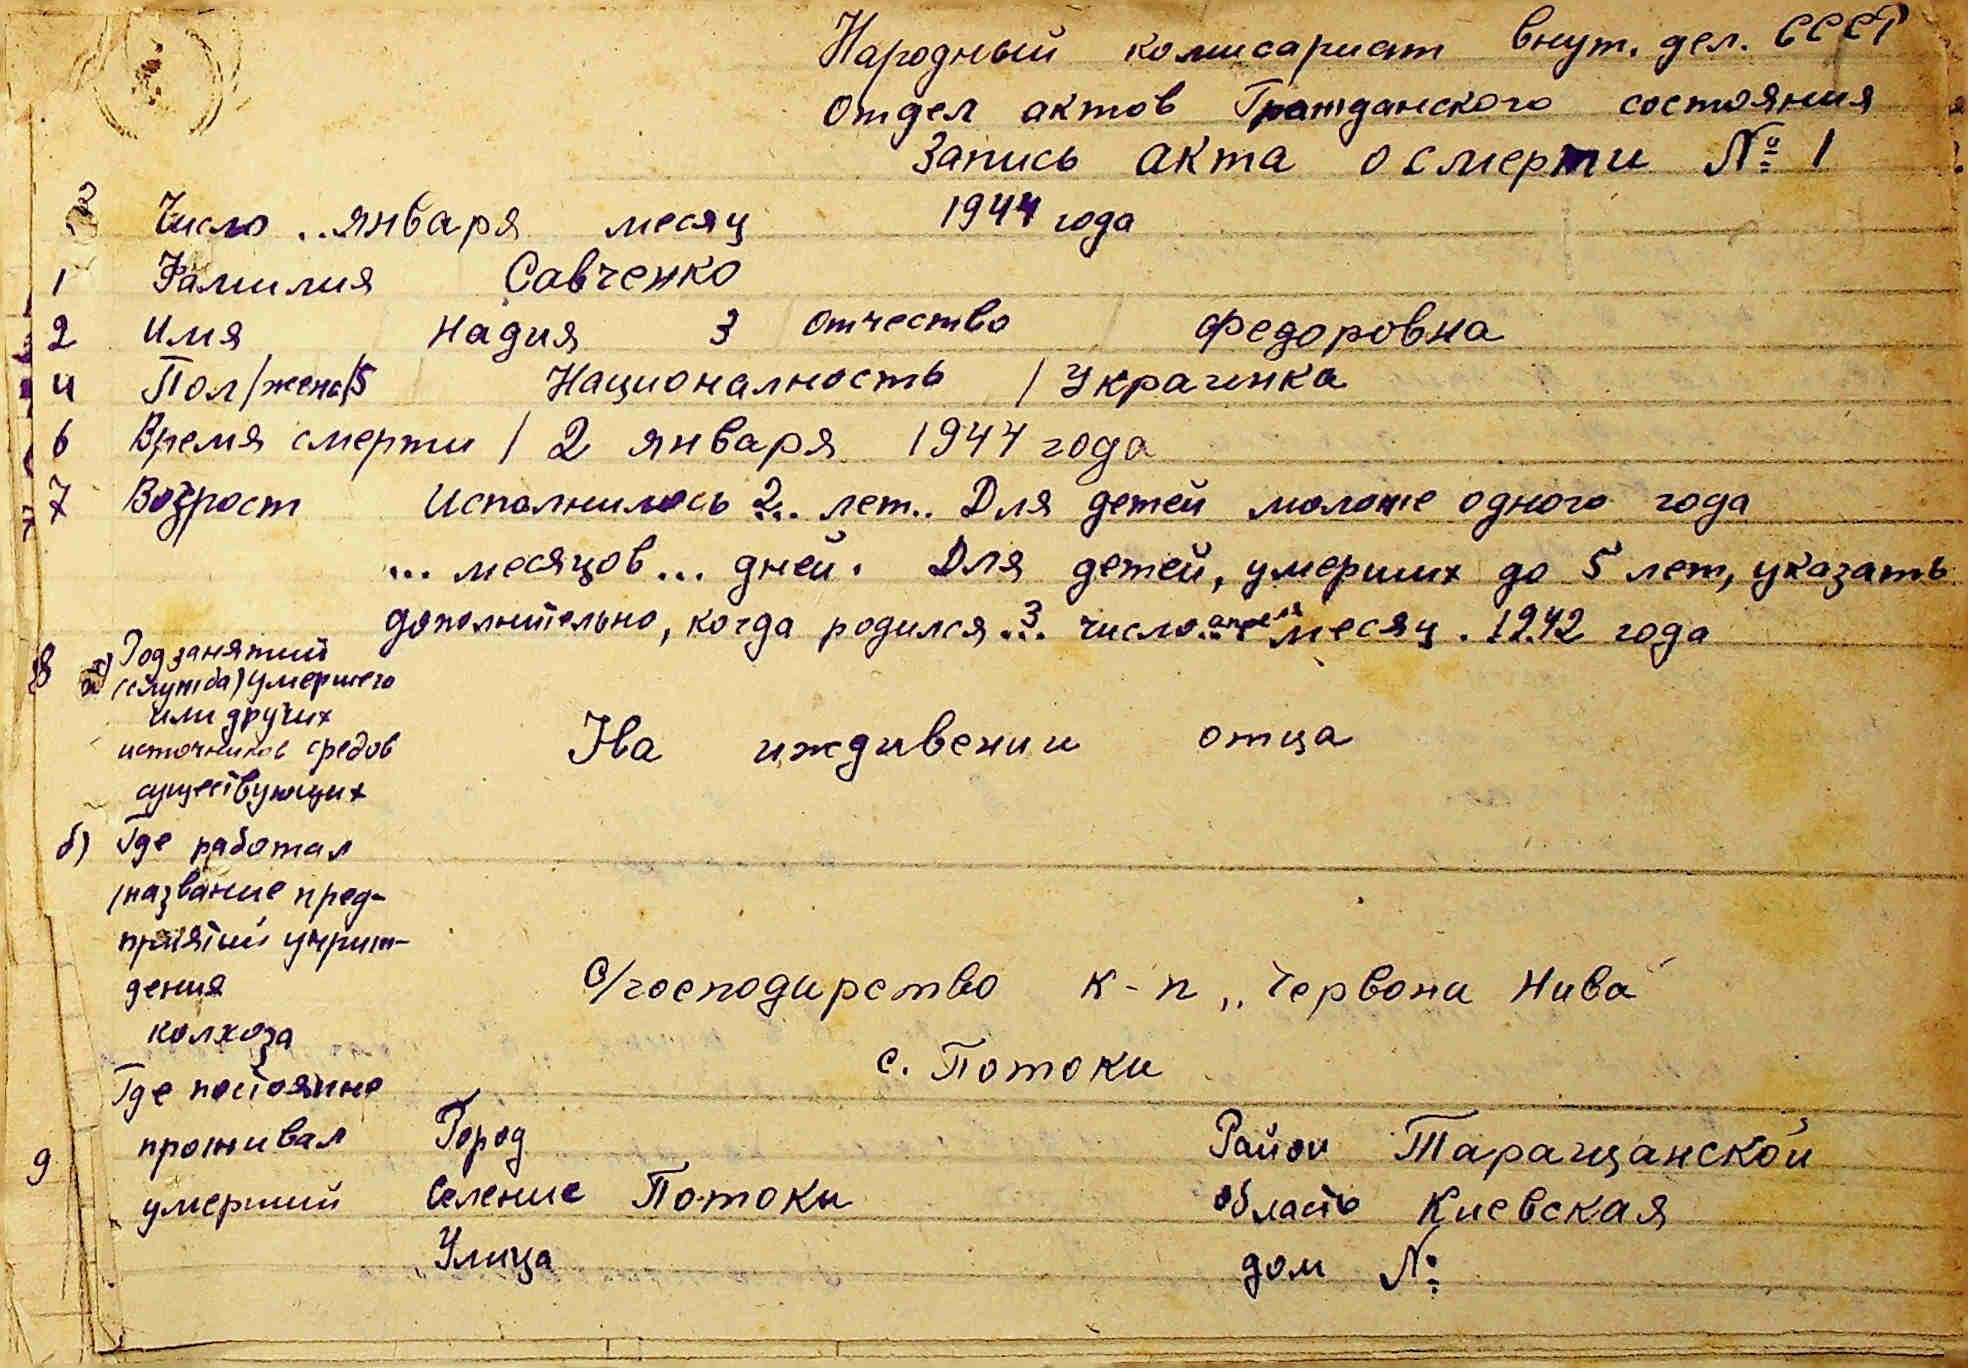 Народный комисариат внут. дел. СССР
Отдел актов Гражданского состояния
Запись акта о смерти № 1
2 Число .. января месяц 1944 года
1 Фамилия Савченко
2 Имя Надия 3 Отчество Федоровна
4 Пол /жена/ 5 Националность / Украинка
6 Время смерти / 2 января 1944 года
7 Возрост Исполнилось 2... лет.. Для детей моложе одного года
... месяцов ... дней. Для детей, умерших до 5 лет, указать
дополнительно, когда родился .3. число апреля месяц. 1942 года
8 а) Род занятий
(служба) умершего
или других
источников средов
существующих
На иждивении отца
б) Где работал
/название пред-
приятий учриж-
дения
колхоза
С/господирство к-п „Червони Нива"
с. Потоки
Где постояно
9 проживал Город Район Таращанской
умерший Селение Потоки область Киевская
Улица дом №